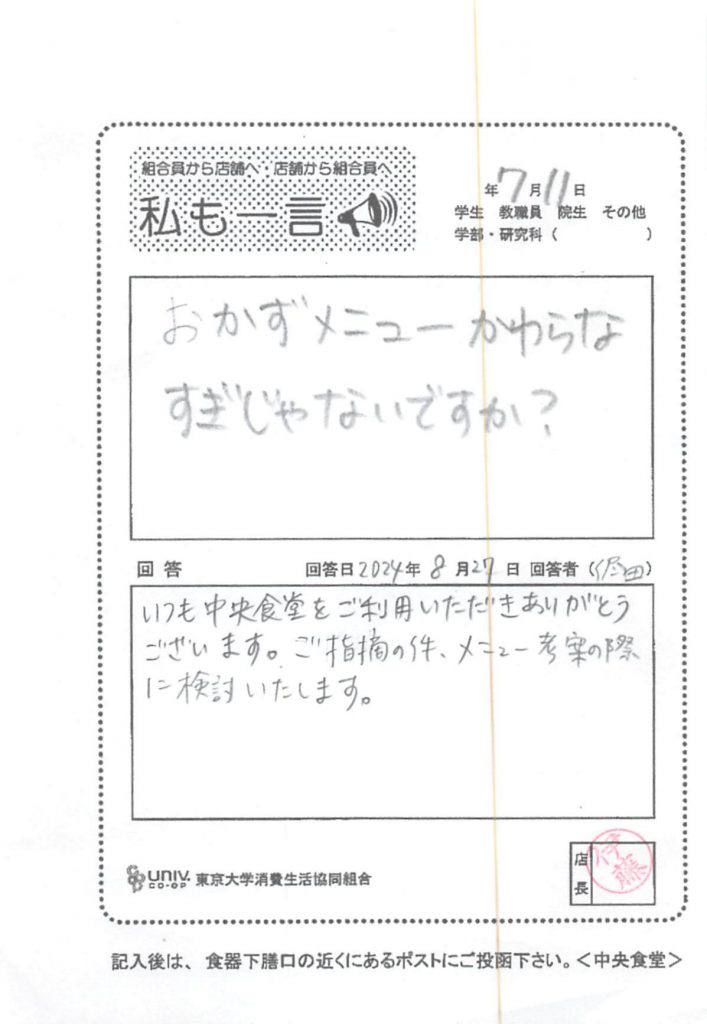 組合員から店舗へ・店舗から組合員へ
私も一言
年7月11日
学生 教職員 院生 その他
学部・研究科（ ）
おかずメニューかわらな
すぎじゃないですか?
回答 回答日2024年8月27日 回答者（ 田）
いつも中央食堂をご利用いただきありがとう
ございます。ご指摘の件、メニュー考案の際
に検討いたします。
UNIV. CO-OP 東京大学消費生活協同組合
店長
伊藤
記入後は、食器下膳口の近くにあるポストにご投函下さい。＜中央食堂＞